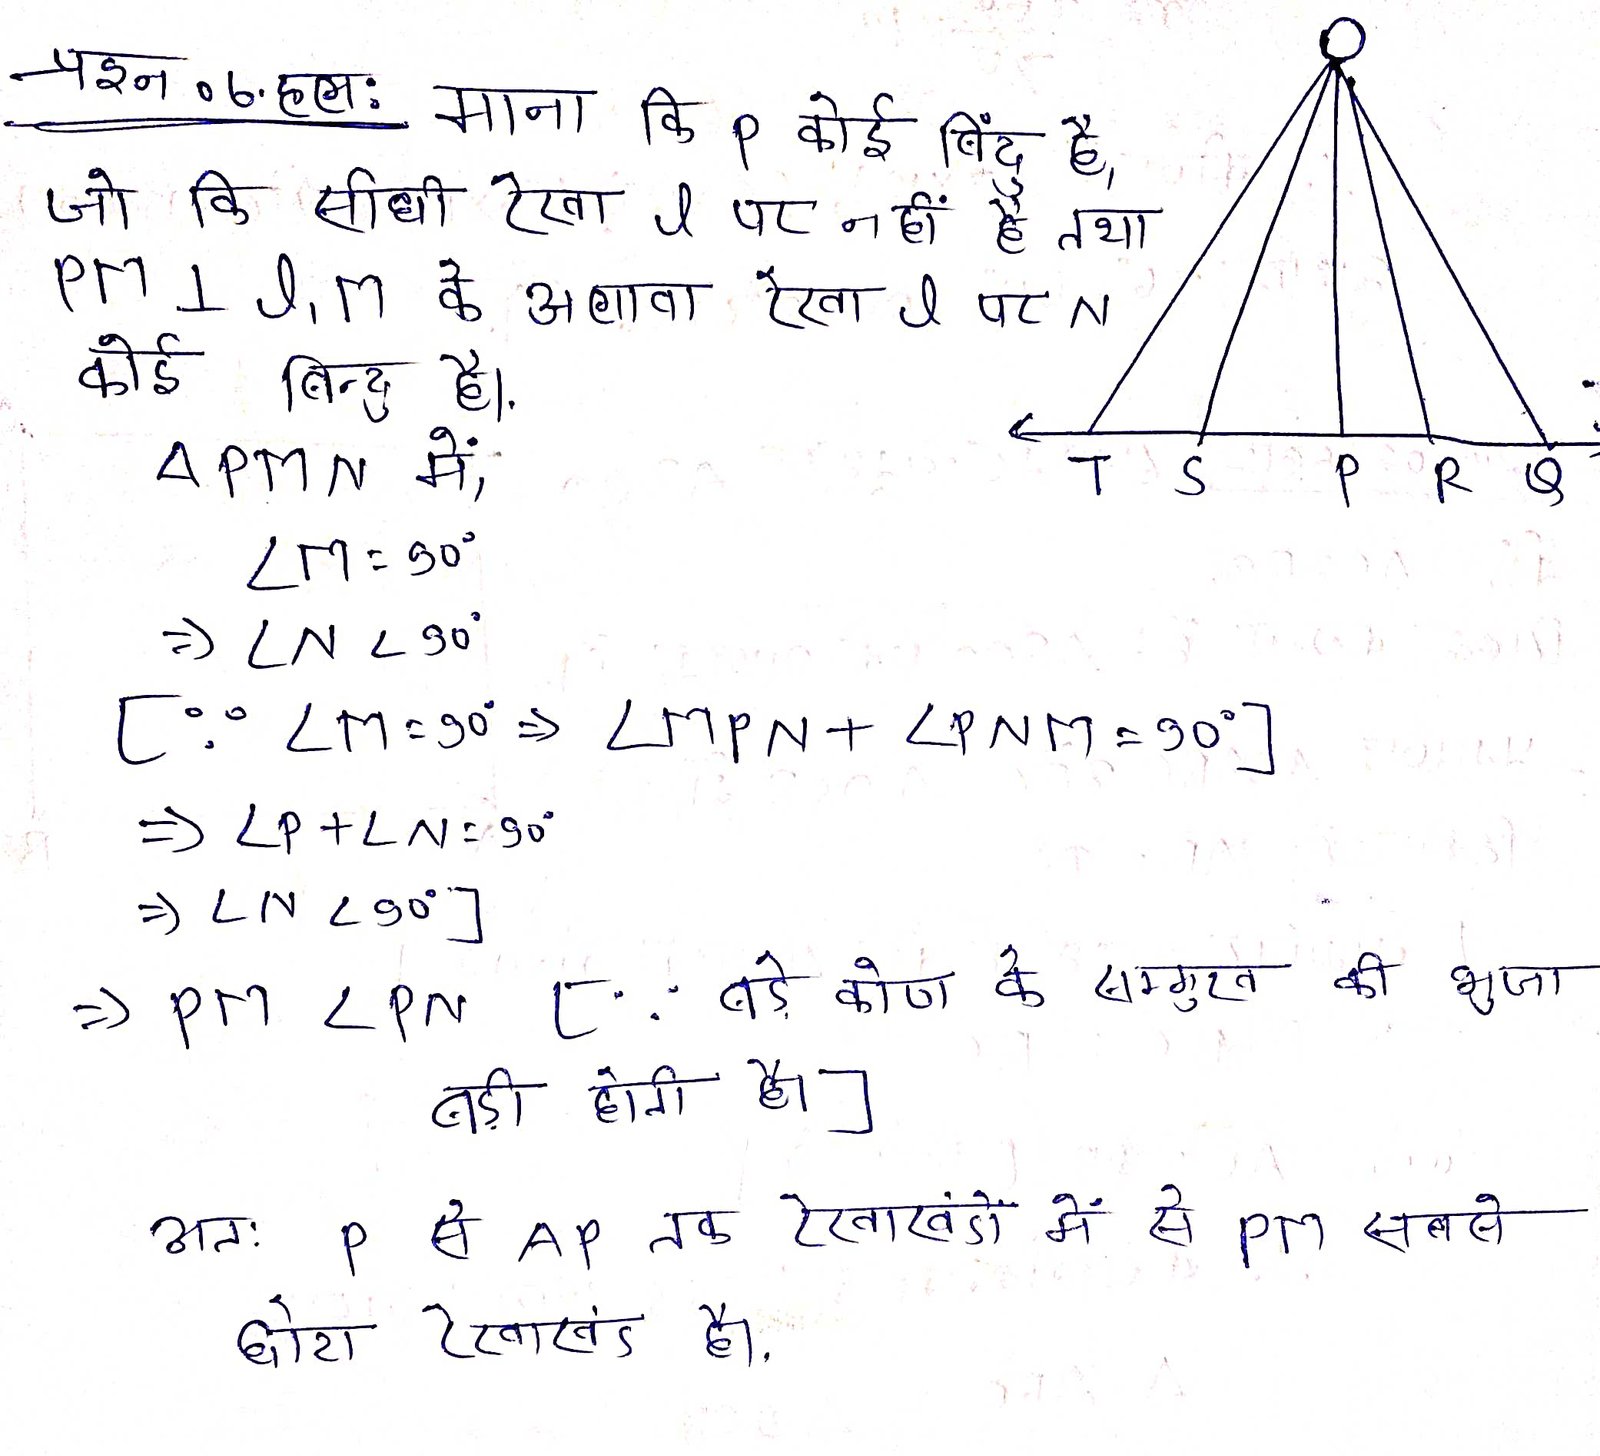 प्रश्न 06. हलः माना कि P कोई बिंदु है,
जो कि सीधी रेखा l पर नहीं है तथा
PM ⊥ l, M के अलावा रेखा l पर N
कोई बिन्दु है।.
Δ PMN में,
∠M = 90°
⇒ ∠N < 90°
[∵ ∠M = 90° ⇒ ∠MPN + ∠PNM = 90°]
⇒ ∠P + ∠N = 90°
⇒ ∠N < 90°]
⇒ PM < PN [∵ बड़े कोण के सम्मुख की भुजा
बड़ी होती है।]
अतः P से AP तक रेखाखंडों में से PM सबसे
छोटा रेखाखंड है।.
T S P R Q